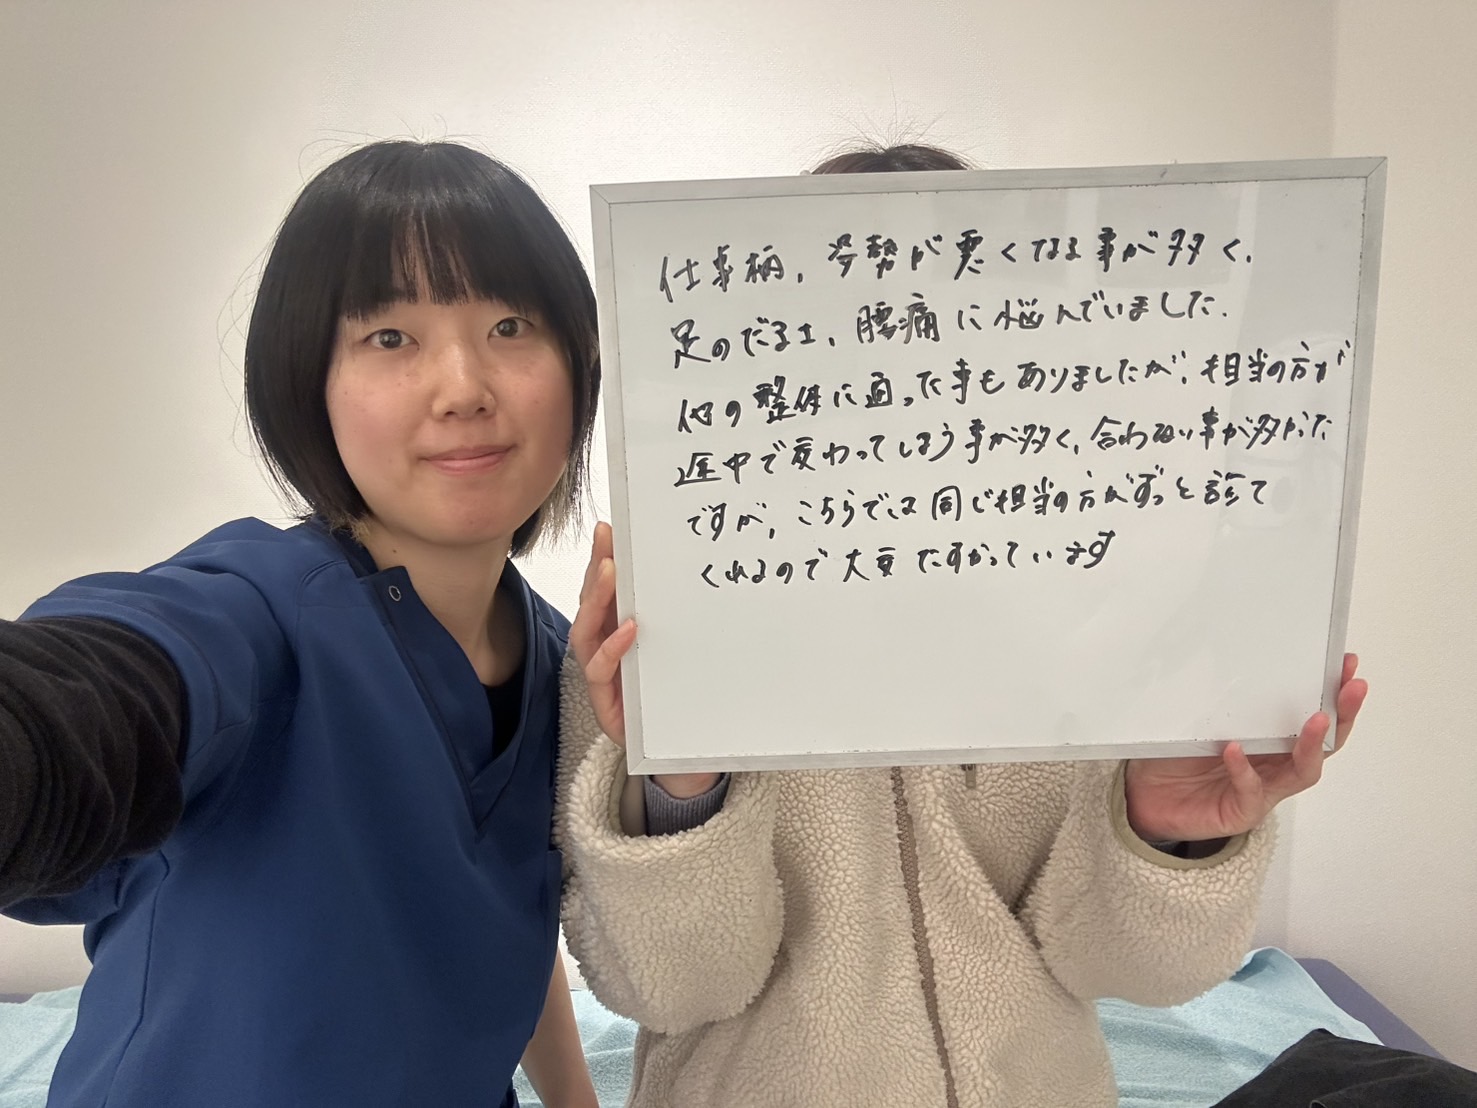 仕事柄、姿勢が悪くなる事が多く、
足のだるさ、腰痛に悩んでいました。
他の整体に通った事もありましたが、担当の方が
途中で変わってしまう事が多く、合わない事が多かった
ですが、こちらでは同じ担当の方がずっと診て
くれるので大変たすかっています